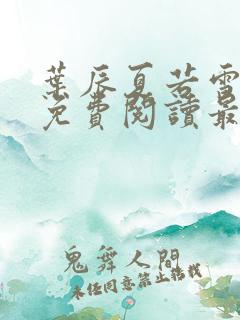 葉辰夏若雪
免費閱讀最
鬼舞人間
未經同意禁止轉載